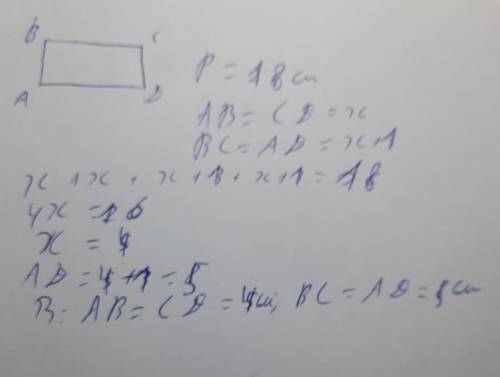 B C
A D
P = 18 см
AB = CD = x
BC = AD = x+1
x + x + x + 1 + x + 1 = 18
4x = 16
x = 4
AD = 4 + 1 = 5
B: AB = CD = 4 см, BC = AD = 5 см